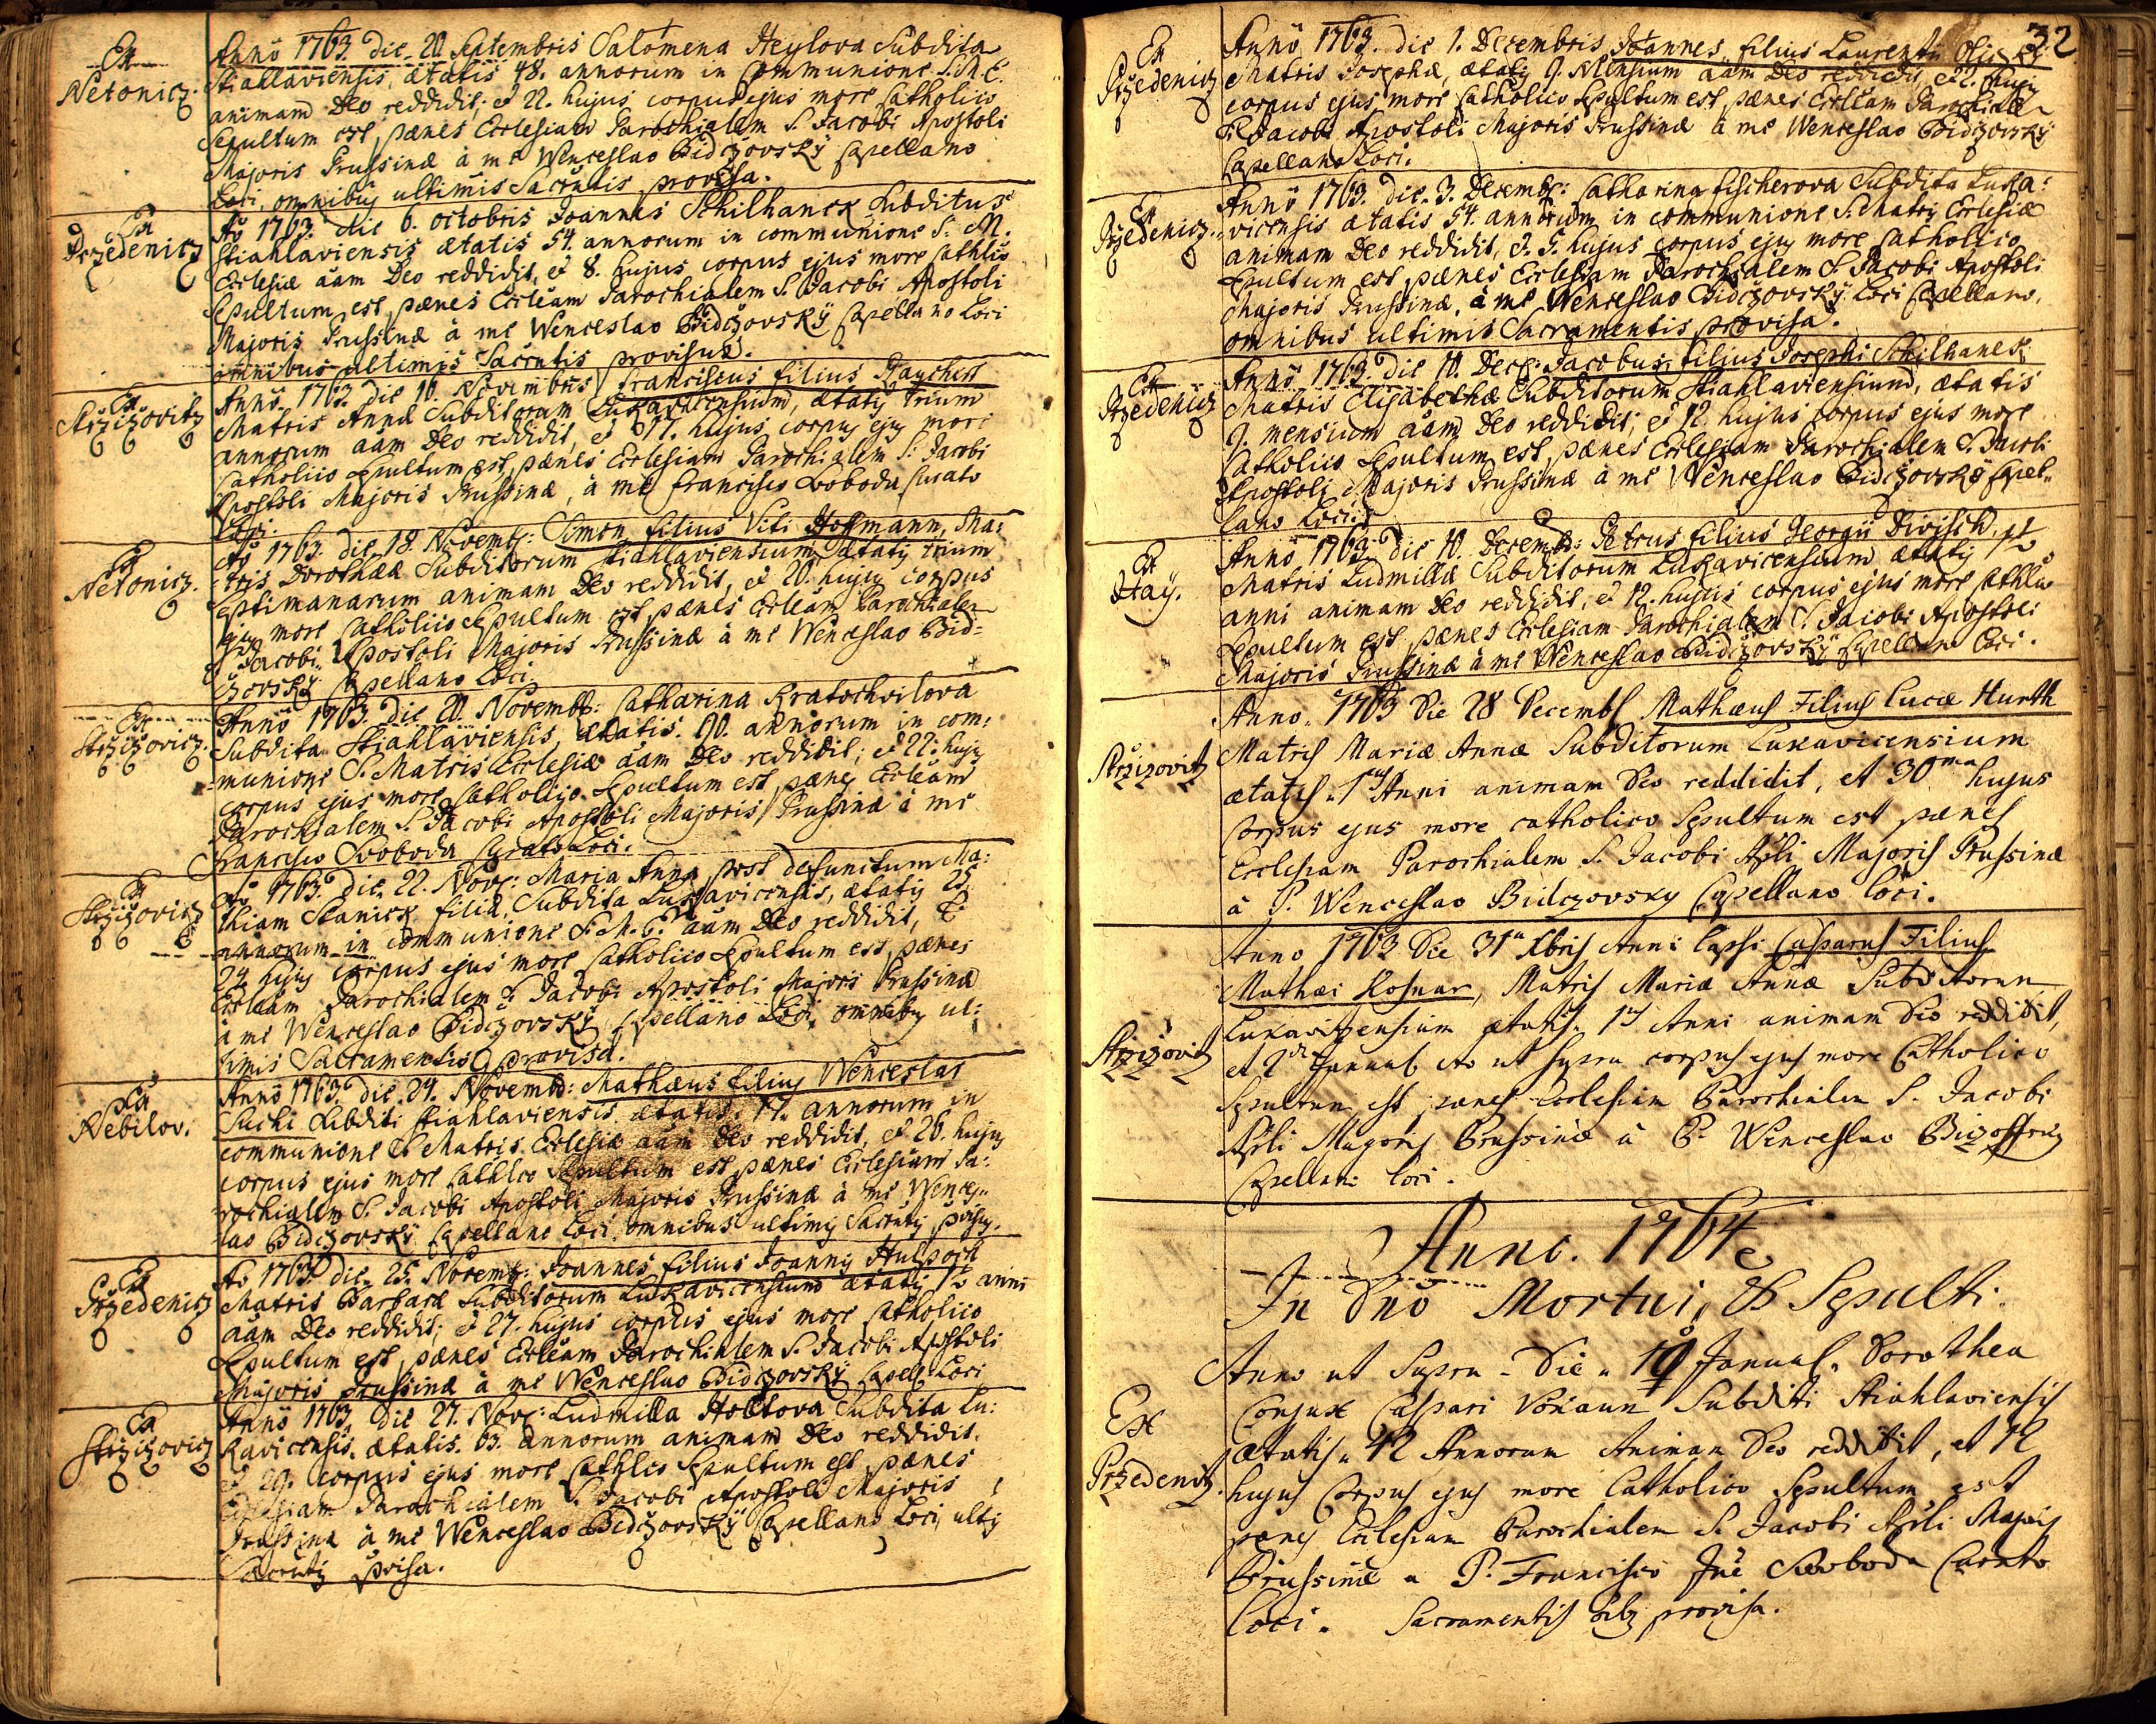 Ex
Netonicz.
Anno 1763 die 20 Septembris Salomena Heylova Subdita
Stiahlaviensis, ætatis 48. annorum in Communione S.M.E.
animam Deo reddidit; et 22. hujus corpus ejus more Catholico
Sepultum est pænes Ecclesiam Parochialem S. Jacobi Apostoli
Majoris Prussinæ à me Wenceslao Bidczovskÿ Capellano
Loci, omnibus ultimis Sacrntis provisa.
Ex
Przedenicz
Ao 1763. die 6. octobris Joannes Schilhanek Subditus
Stiahlaviensis ætatis 54. annorum in communione S. M.
Ecclesiæ aam Deo reddidit, et 8. hujus corpus ejus more Cathlio
Sepultum est pænes Eccleam Parochialem S. Jacobi Apostoli
Majoris Prussinæ à me Wenceslao Bidczovskÿ Capellano Loci
omnibus ultimis Sacrntis provisus.
Ex
Strzizovitz
Anno 1763. die 16. Novembris Franciscus filius Raychert
Matris Annæ Subditorum Lukavicensium, ætatis trium
annorum aam Deo reddidit, et 17. hujus corpus ejus more
Catholico Sepultum est, pænes Ecclesiam Parochialem S: Jacobi
Apostoli Majoris Prussinæ, à me Francisco Soboda Curato
Loci.
Ex
Netonicz.
Ao 1763. die 18 Novemb: Simon filius Viti Hoffmann, Ma:
tris Dorotheæ Subditorum Stiahlaviensium ætatis trium
septimanarum animam Deo reddidit, et 20. hujus corpus
ejus more Catholico Sepultum est pænes Eccleam Parochialem
S. Jacobi Apostoli Majoris Prussinæ à me Wenceslao Bid=
czovskÿ Capellano Loci.
Ex
Strzizovicz.
Anno 1763. die 20. Novemb: Catharina Kratochvilova
Subdita Stiahlaviensis, ætatis. 90. annorum in com:
munione S. Matris Ecclesiæ aam Deo reddidit; et 22. hujus
corpus ejus more Catholico Sepultum est pænes Eccleam
Parochialem S. Jacobi Apostoli Majoris Prussinæ à me
Francisco Svoboda Curato Loci.
Ex
Strzizovicz
Ao 1763. die 22. Nov: Maria Anna post defunctum Ma:
thiam Stanick filia, Subdita Lukavicensis, ætatis 25
annorum in communione S. M. E. aam Deo reddidit, et
24 hujus corpus ejus more Catholico Sepultum est pænes
Eccleam Parochialem S. Jacobi Apostoli Majoris Prussinæ
à me Wenceslao Bidczovskÿ Capellano Loci, omnibus ul:
timis Sacramentis provisa.
Ex
Nebilov.
Anno 1763. die. 24. Novemb: Mathæus filius Wenceslai
Suchi Subditi Stiahlaviensis ætatis. 17. annorum in
communione S. Matris Ecclesiæ aam Deo reddidit, et 26. hujus
corpus ejus more Cathlco Sepultum est pænes Ecclesiam Pa:
rochialem S. Jacobi Apostoli Majoris Prussinæ à me Wences
lao Bidczovskÿ Capellano Loci, omnibus ultimis Sacrntis pvisus.
Ex
Przedenicz
Ao 1763. die 25. Novemb: Joannes filius Joannis Hulsoch
Matris Barbaræ Subditorum Lukavicensium ætatis 1½ anni
aam Deo reddidit; et 27. hujus corpus ejus more Catholico
Sepultum est, pænes Eccleam Parochialem S. Jacobi Apostoli
Majoris Prussinæ à me Wenceslao Bidczovskÿ Capell: Loci
Ex
Strzizovicz
Anno 1763. die 27. Nov: Ludmilla Holttova Subdita Lu:
kavicensis. ætatis. 63. annorum animam Deo reddidit.
et 29. corpus ejus more Cathlico Sepultum est pænes
Ecclesiam Parochialem S. Jacobi Apostoli Majoris
Prussinæ à me Wenceslao Bidczovskÿ Capellano Loci, ultis
Sacrntis pvisa.
32
Ex
Przedenicz
Anno 1763. die 1. Decembris Joannes filius Laurentii
Matris Josephæ, ætatis 9. Mensium aam Deo reddidit, et hujus
corpus ejus more Catholico Sepultum est, pænes Eccleam Parochialem
S. Jacobi Apostoli Majoris Prussinæ à me Wenceslao Bidczovskÿ
Capellano Loci.
Ex
Przedenicz.
Anno 1763. die. 3. Decemb: Catharina Fischerova Subdita Luka:
vicensis ætatis 54. annorum in communione S. Matris Ecclesiæ
animam Deo reddidit, et. 5. hujus corpus ejus more Catholico
Sepultum est pænes Ecclesiam Parochialem S. Jacobi Apostoli
Majoris Prussinæ. à me Wenceslao Bidczovskÿ Loci Capellano,
omnibus ultimis Sacramentis provisa.
Ex
Przedenicz
Anno 1763. die 10. Dec: Jacobus, filius Josephi Schilhanek
Matris Elisabethæ Subditorum Stiahlaviensium, ætatis
9. mensium aam Deo reddidit, et 12. hujus corpus ejus more
Catholico Sepultum est, pænes Ecclesiam Parochialem S. Jacobi
Apostoli Majoris Prussinæ à me Wenceslao Bidczovskÿ Capel=
lano Loci.
Ex
Hay.
Anno 1763. die 10. Decemb: Petrus filius Georgii Divisch
Matris Ludmillæ Subditorum Lukavicensium ætatis 1½
anni animam Deo reddidit, et 12. hujus corpus ejus more Cathlico
Sepultum est pænes Ecclesiam Parochialem S. Jacobi Apostoli
Majoris Prussinæ à me Wenceslao Bidczovskÿ Capellano Loci.
Strzizovitz
Anno. 1763 Die 28 Decembs Mathæus Filius Lucæ Hurth
Matris Mariæ Annæ Subditorum Lukavicensium
ætatis. 1us Anni animam Deo reddidit, et 30ma hujus
Corpus ejus more catholico Sepultum est pænes
Ecclesiam Parochialem S. Jacobi Apli Majoris Prussinæ
à P. Wenceslao Bidczovsky Capellano Loci.
Strzizovitz
Anno 1763 Die 31a Xbris Anni lapsi Casparus Filius
Mathæi Kosnar, Matris Mariæ Annæ Subditorum
Lukavitzensium ætatis. 1us Anni animam Deo reddidit,
et 2da Januas Ao ut supra corpus ejus more Catholico
Sepultum est pænes Ecclesiam Parochialem S. Jacobi
Apli Majoris Prussinæ à P. Wenceslao
Capellano Loci.
Anno. 1764
In Dno Mortui, & Sepulti.
Ex
Przedenitz.
Anno ut Supra. Die. 10 Januas. Dorothea
Conjux Caspari Vokaun Subditi Stiahlaviensis
ætatis. 42 Annorum Animam Deo reddidit, et 12
hujus Corpus ejus more Catholico Sepultum est
pænes Ecclesiam Parochialem S. Jacobi Apli Majoris
Prussinæ a P. Francisco Swoboda Curato
Loci. Sacramentis provisa.